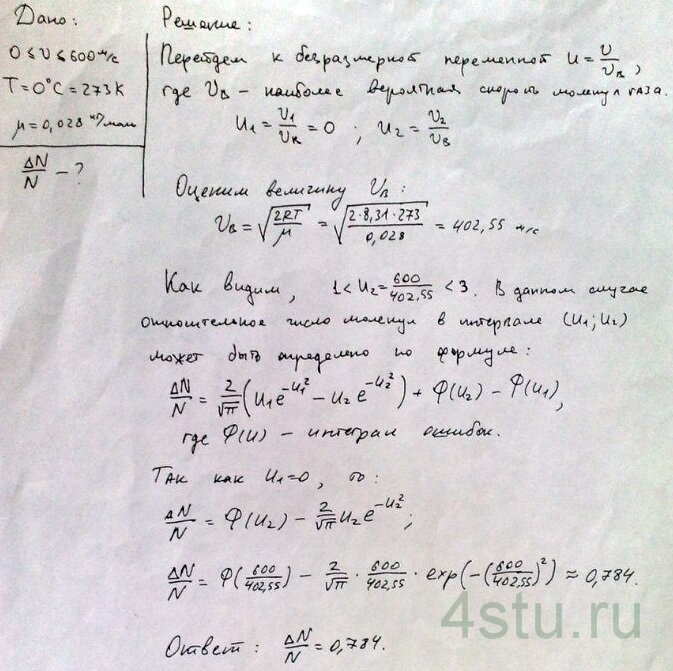 Дано:
0 ≤ υ ≤ 600 м/с
T = 0°C = 273 K
μ = 0,028 кг/моль
ΔN/N - ?
Решение:
Перейдем к безразмерной переменной u = υ/υв,
где υв - наиболее вероятная скорость молекул газа.
u₁ = υ₁/υв = 0 ; u₂ = υ₂/υв
Оценим величину υв:
υв = √(2RT/μ) = √(2·8,31·273/0,028) = 402,55 м/с
Как видим, 1 < u₂ = 600/402,55 < 3. В данном случае
относительное число молекул в интервале (u₁; u₂)
может быть определено по формуле:
ΔN/N = 2/√π (u₁e^(-u₁²) - u₂e^(-u₂²)) + Φ(u₂) - Φ(u₁),
где Φ(u) - интеграл ошибок.
Так как u₁=0, то:
ΔN/N = Φ(u₂) - 2/√π u₂e^(-u₂²);
ΔN/N = Φ(600/402,55) - 2/√π · 600/402,55 · exp(-(600/402,55)²) ≈ 0,784.
Ответ: ΔN/N = 0,784.
4stu.ru